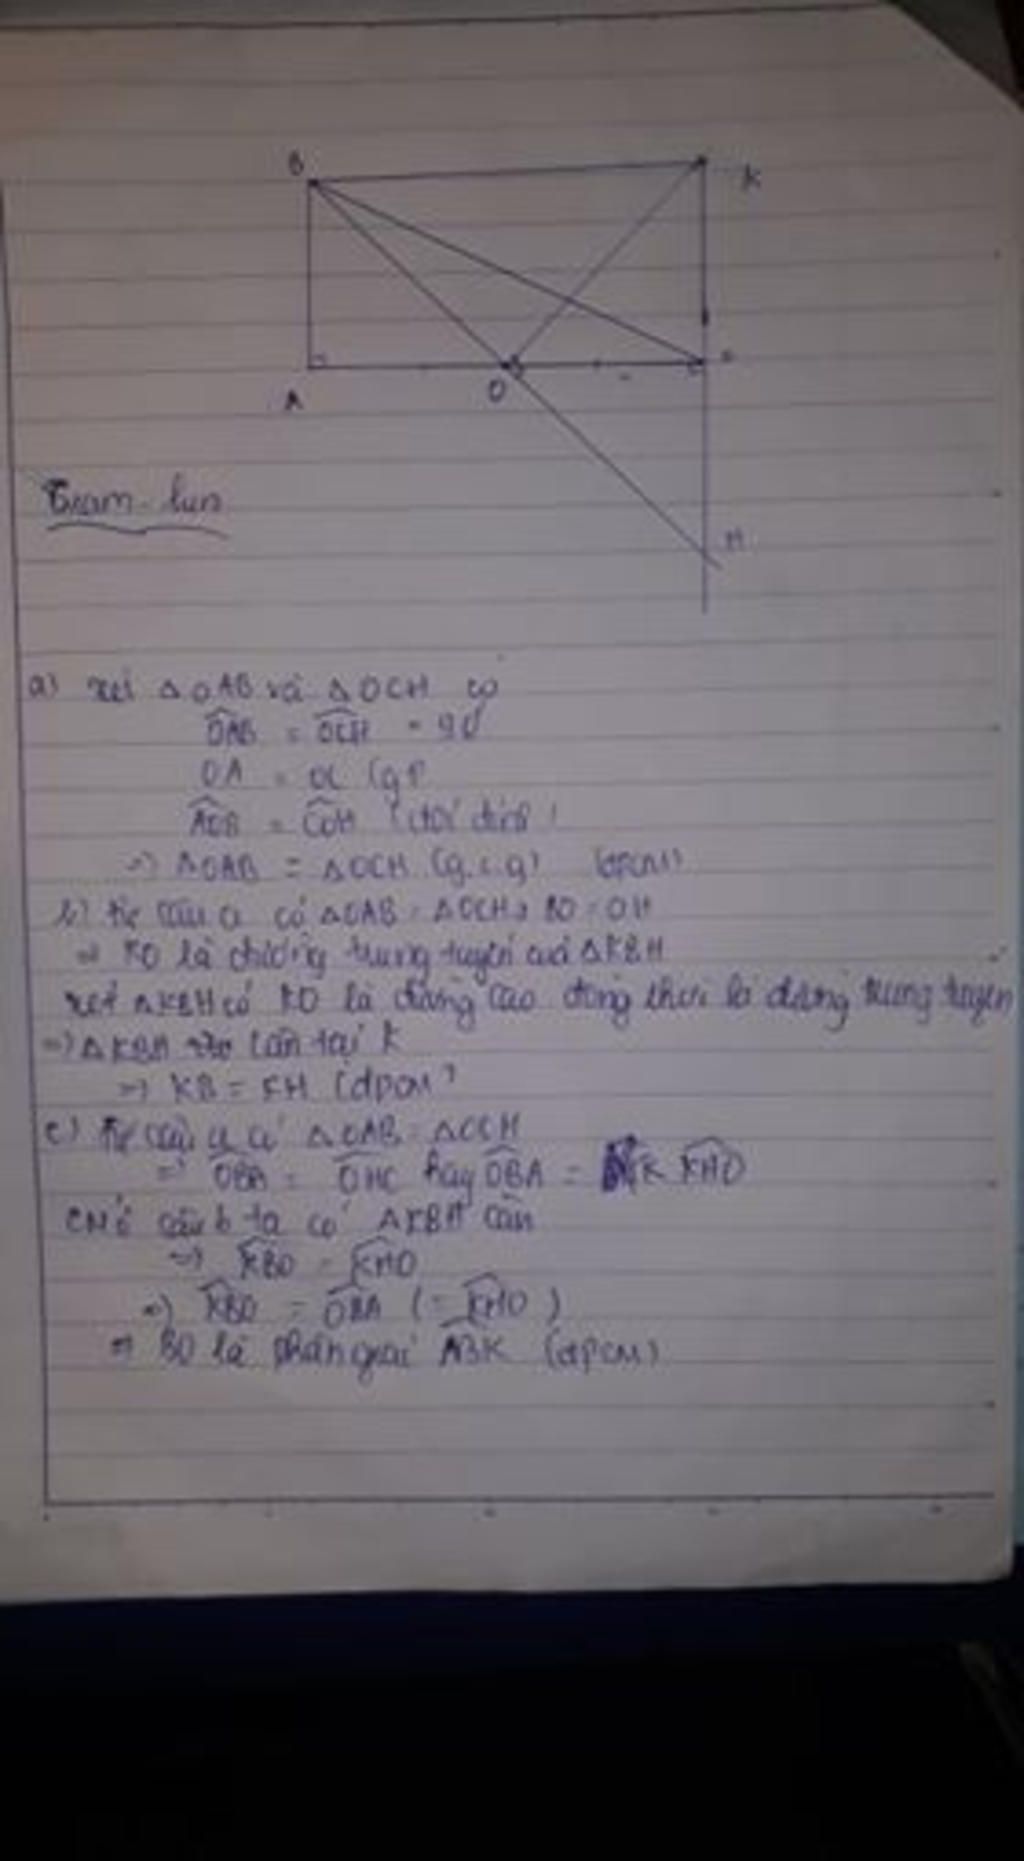 B
K
A
O
H
a) xét △OAB và △OCH có
OAB = OCH = 90
OA = OC (gt)
AOB = COH (đối đỉnh)
=> △OAB = △OCH (g.c.g) (đpcm)
b) Từ câu a có △OAB = △OCH => BO = OH
=> KO là đường trung tuyến của △KBH
xét △KBH có KO là đường cao đồng thời là đường trung tuyến
=> △KBH cân tại K
=> KB = KH (đpcm)
c) Từ câu a có △OAB = △OCH
=> OBA = OHC hay OBA = KHO
câu b ta có △KBH cân
=> KBO = KHO
=> KBO = OBA (= KHO)
=> BO là phân giác ABK (đpcm)